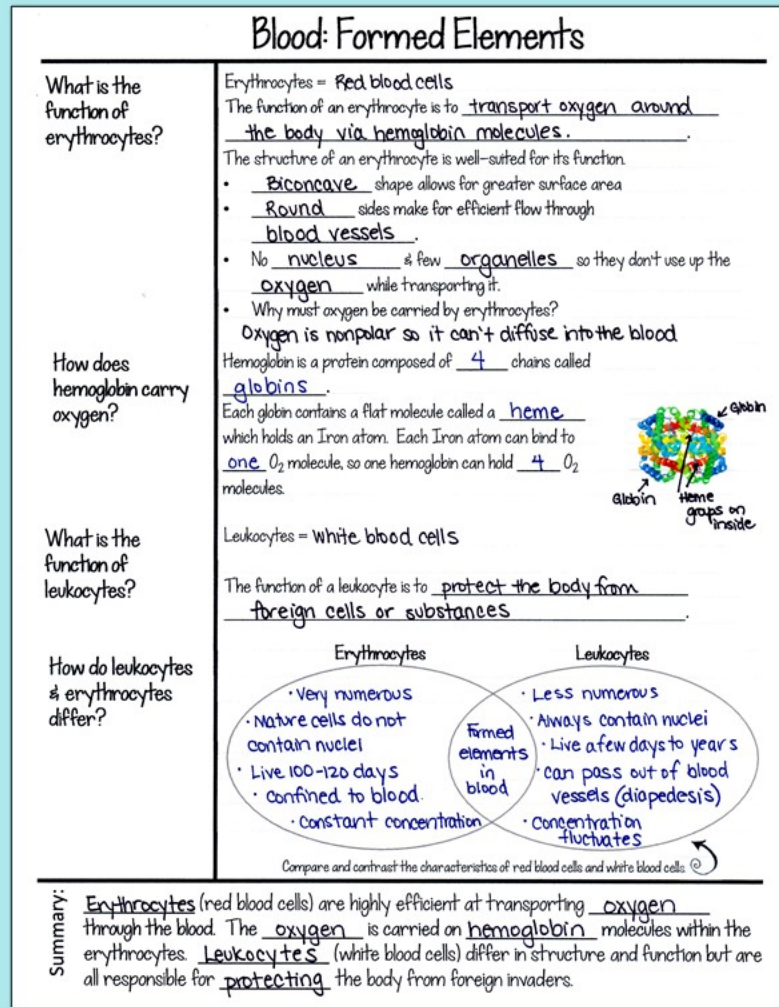 Blood: Formed Elements
What is the
function of
erythrocytes?
Erythrocytes = Red blood cells
The function of an erythrocyte is to transport oxygen around
the body via hemoglobin molecules.
The structure of an erythrocyte is well-suited for its function.
• Biconcave shape allows for greater surface area
• Round sides make for efficient flow through
blood vessels.
• No nucleus & few organelles so they don't use up the
oxygen while transporting it.
• Why must oxygen be carried by erythrocytes?
Oxygen is nonpolar so it can't diffuse into the blood
How does
hemoglobin carry
oxygen?
Hemoglobin is a protein composed of 4 chains called
globins.
Each globin contains a flat molecule called a heme
which holds an Iron atom. Each Iron atom can bind to
one O₂ molecule, so one hemoglobin can hold 4 O₂
molecules.
Globin
Globin
Heme
groups on
inside
What is the
function of
leukocytes?
Leukocytes = White blood cells
The function of a leukocyte is to protect the body from
foreign cells or substances.
How do leukocytes
& erythrocytes
differ?
Erythrocytes
• Very numerous
• Mature cells do not
contain nuclei
• Live 100-120 days
• confined to blood.
• Constant concentration
Formed
elements
in
blood
Leukocytes
• Less numerous
• Always contain nuclei
• Live a few days to years
• can pass out of blood
vessels (diapedesis)
• Concentration
fluctuates
Compare and contrast the characteristics of red blood cells and white blood cells
Summary:
Erythrocytes (red blood cells) are highly efficient at transporting oxygen
through the blood. The oxygen is carried on hemoglobin molecules within the
erythrocytes. Leukocytes (white blood cells) differ in structure and function but are
all responsible for protecting the body from foreign invaders.